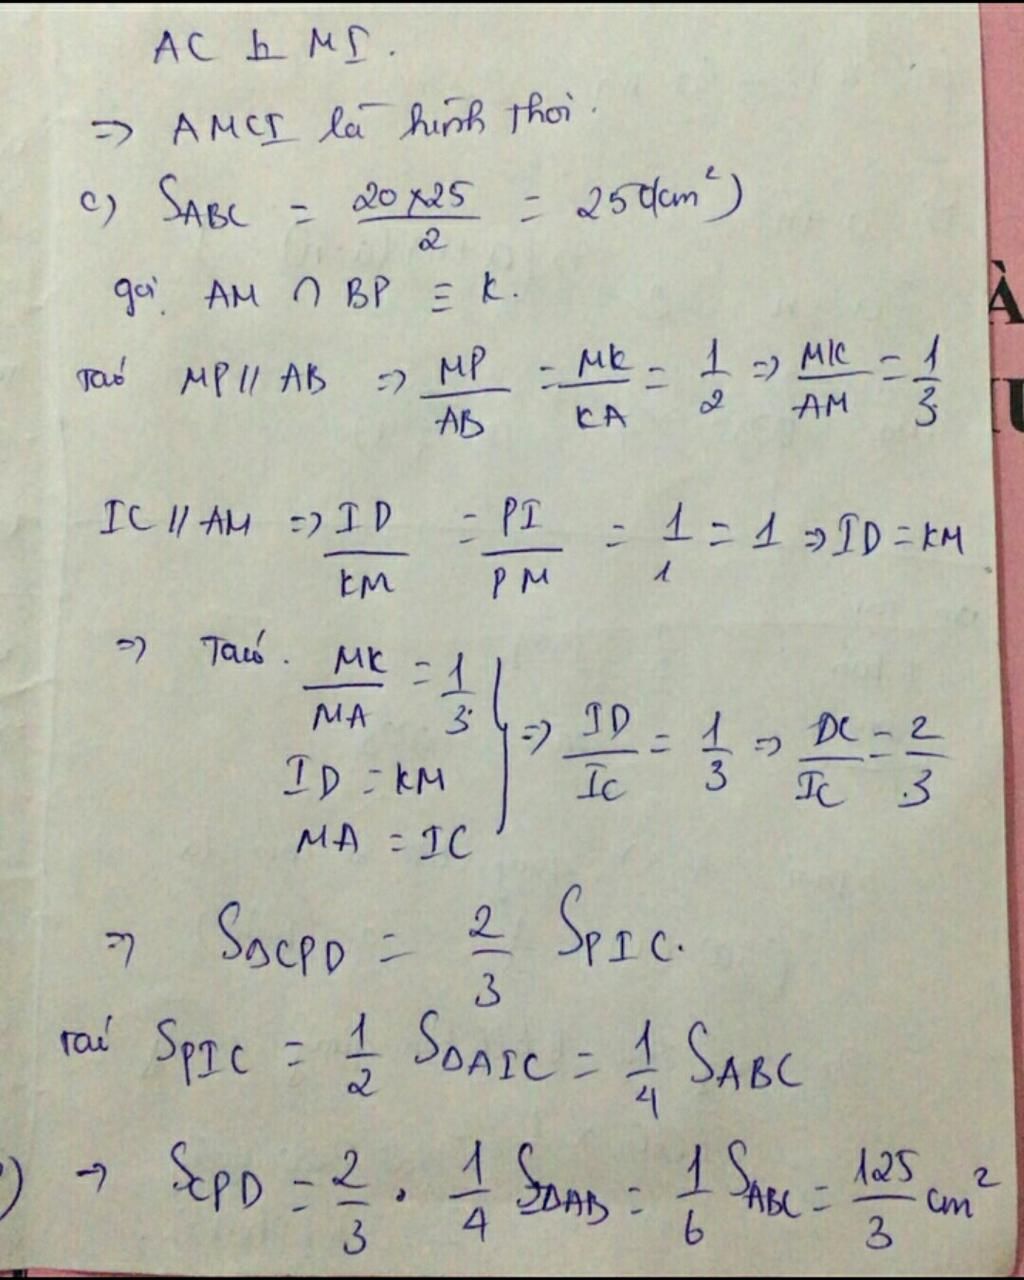 AC ⊥ MI.
=> AMCI là hình thoi.
c) S_ABC = (20×25)/2 = 250(cm²)
gọi AM ∩ BP ≡ K.
Ta có MP // AB => MP/AB = MK/KA = 1/2 => MK/AM = 1/3
IC // AM => ID/KM = PI/PM = 1/1 = 1 => ID = KM
=> Ta có. MK/MA = 1/3
ID = KM
MA = IC
} => ID/IC = 1/3 => DC/IC = 2/3
=> S_ΔCPD = 2/3 S_PIC.
Ta có S_PIC = 1/2 S_ΔAIC = 1/4 S_ABC
=> S_CPD = 2/3 . 1/4 S = 1/6 S_ABC = 125/3 cm²
À